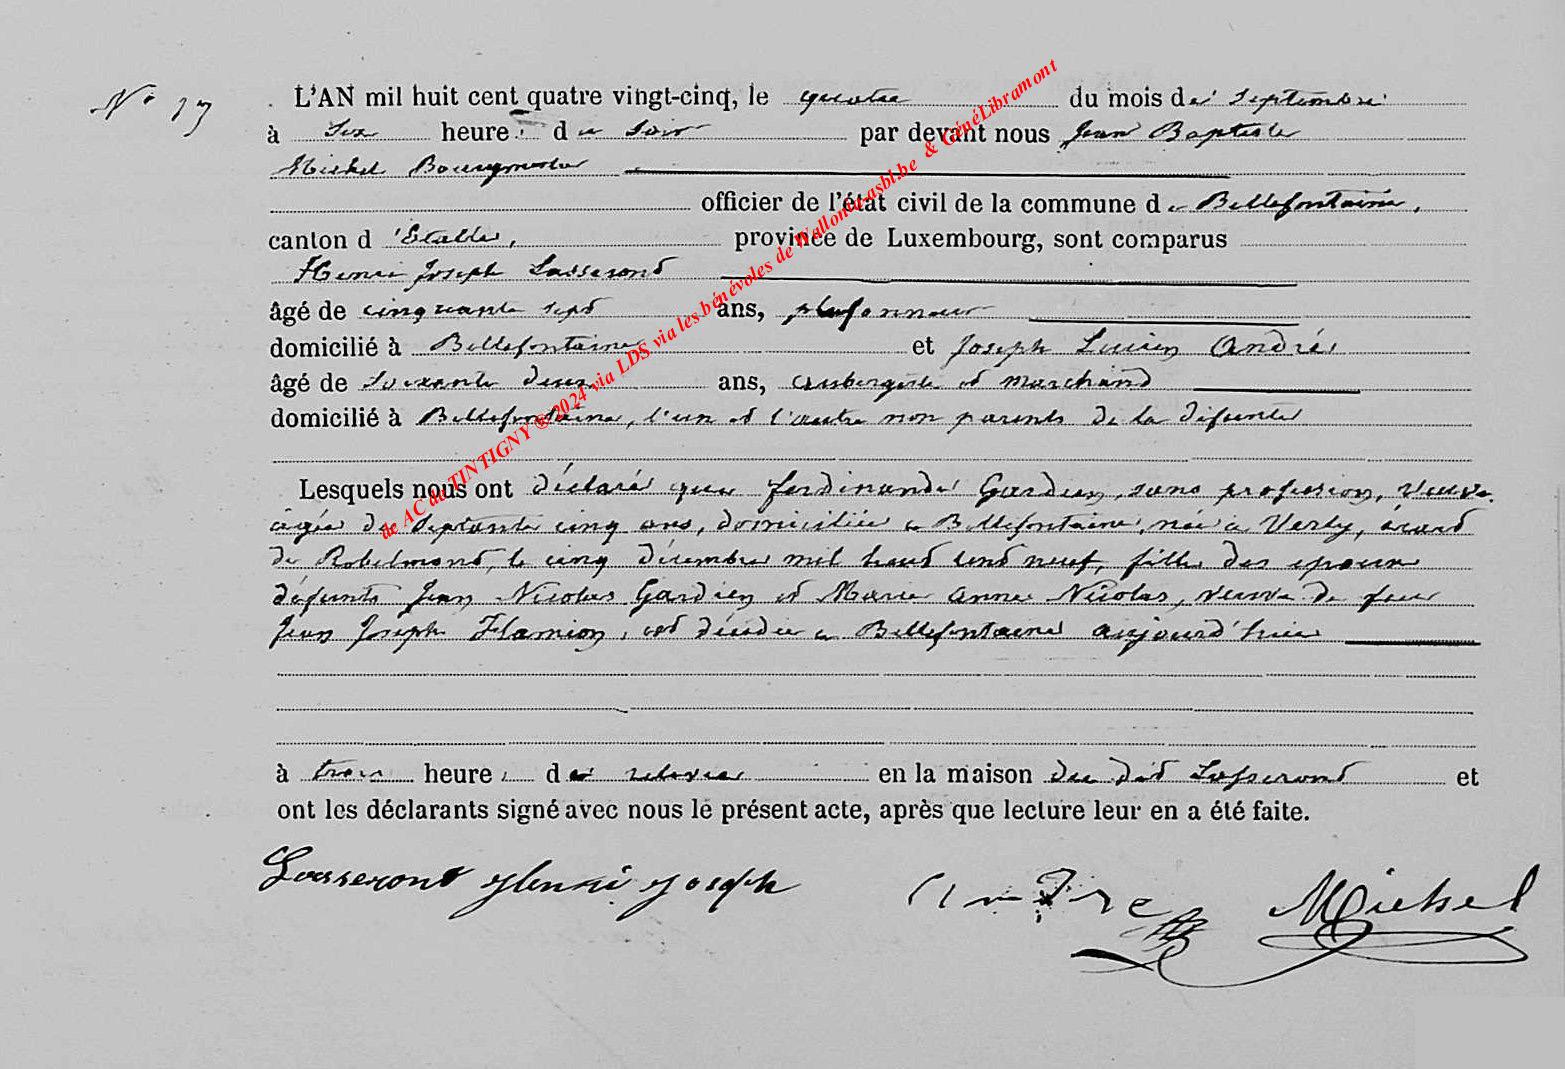 N° 17
L'AN mil huit cent quatre vingt-cinq, le quatre du mois de septembre
à six heures du soir par devant nous Jean Baptiste
Michel Bourgmestre
officier de l'état civil de la commune de Bellefontaine,
canton d'Etalle, province de Luxembourg, sont comparus
Henri Joseph Lasseront
âgé de cinquante sept ans, plafonneur
domicilié à Bellefontaine et Joseph Lucien André
âgé de soixante deux ans, aubergiste et marchand
domicilié à Bellefontaine, l'un et l'autre non parents de la défunte
Lesquels nous ont déclaré que Ferdinande Gardien, sans profession, veuve
âgée de septante cinq ans, domiciliée à Bellefontaine, née à Verly, écart
de Robelmont, le cinq décembre mil huit cent neuf, fille des époux
défunts Jean Nicolas Gardien et Marie Anne Nicolas, veuve de feu
Jean Joseph Flamion, est décédée à Bellefontaine aujourd'hui
à trois heures de relevée en la maison du dit Lasseront et
ont les déclarants signé avec nous le présent acte, après que lecture leur en a été faite.
Lasseront Henri Joseph André Michel
de AC de TINTIGNY © 2024 via LDS via les bénévoles de Wallonia-asbl.be & GénéLibramont